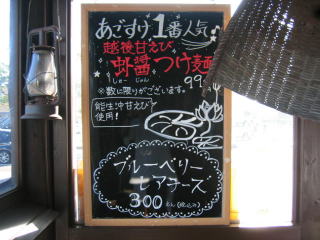 あごすけ1番人気
越後甘えび
蝦醤つけ麺
しゃーじゃん
※数に限りがございます。
能生沖甘えび
使用！
ブルーベリー
レアチーズ
300